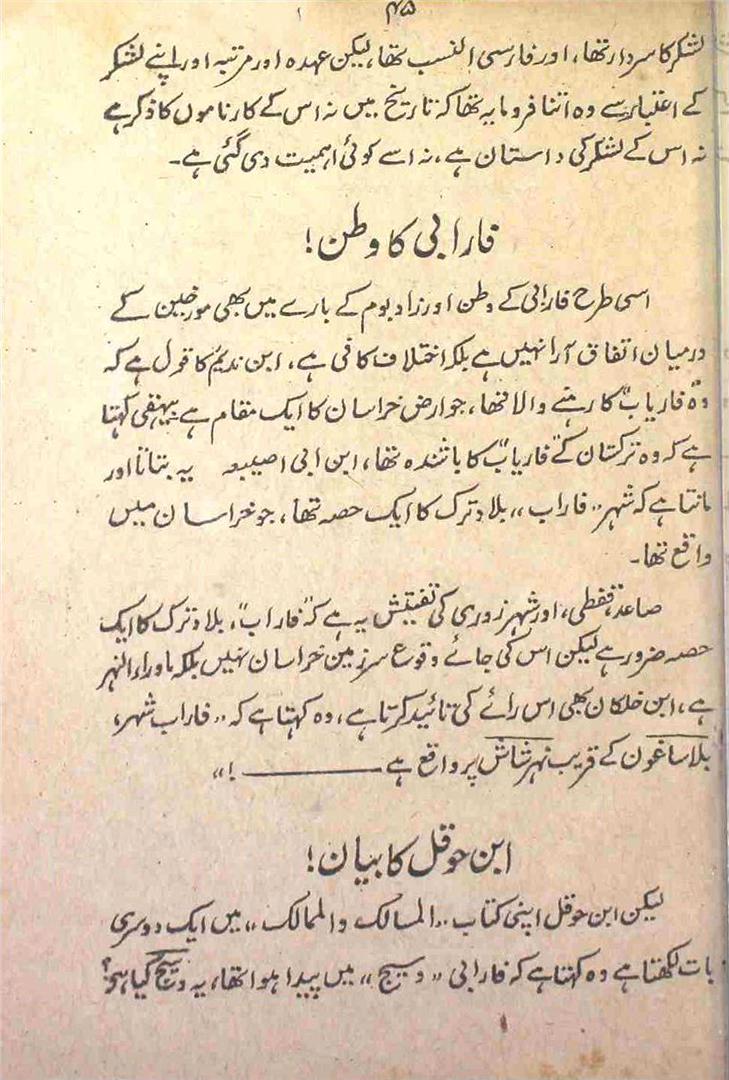 ۴۵
لشکر کا سردار تھا، اور فارسی النسب تھا، لیکن عہدہ اور مرتبہ اور اپنے لشکر
کے اعتبار سے وہ اتنا فرومایہ تھا کہ تاریخ میں نہ اس کے کارناموں کا ذکر ہے
نہ اس کے لشکر کی داستان ہے، نہ اسے کوئی اہمیت دی گئی ہے۔
فارابی کا وطن!
اسی طرح فارابی کے وطن اور زاد بوم کے بارے میں بھی مورخین کے
درمیان اتفاق آرا نہیں ہے بلکہ اختلاف کافی ہے، ابن ندیم کا قول ہے کہ
وہ "فاریاب" کا رہنے والا تھا، جو ارض خراسان کا ایک مقام ہے بیہقی کہتا
ہے کہ وہ ترکستان کے "فاریاب" کا باشندہ تھا، ابن ابی اصیبعہ یہ بتاتا اور
مانتا ہے کہ شہر "فاراب" بلاد ترک کا ایک حصہ تھا، جو خراسان میں
واقع تھا۔
صاعد، قفطی، اور شہر زوری کی تفتیش یہ ہے کہ "فاراب"، بلاد ترک کا ایک
حصہ ضرور ہے لیکن اس کی جائے وقوع سرزمین خراسان نہیں بلکہ ماوراء النہر
ہے، ابن خلکان بھی اس رائے کی تائید کرتا ہے، وہ کہتا ہے کہ "فاراب شہر،
بلاساغون کے قریب نہر شاش پر واقع ہے ــــــــــــ !"
ابن حوقل کا بیان!
لیکن ابن حوقل اپنی کتاب "المسالک والممالک" میں ایک دوسری
بات لکھتا ہے وہ کہتا ہے کہ فارابی "وسیج" میں پیدا ہوا تھا، یہ وسیج کیا ہو؟